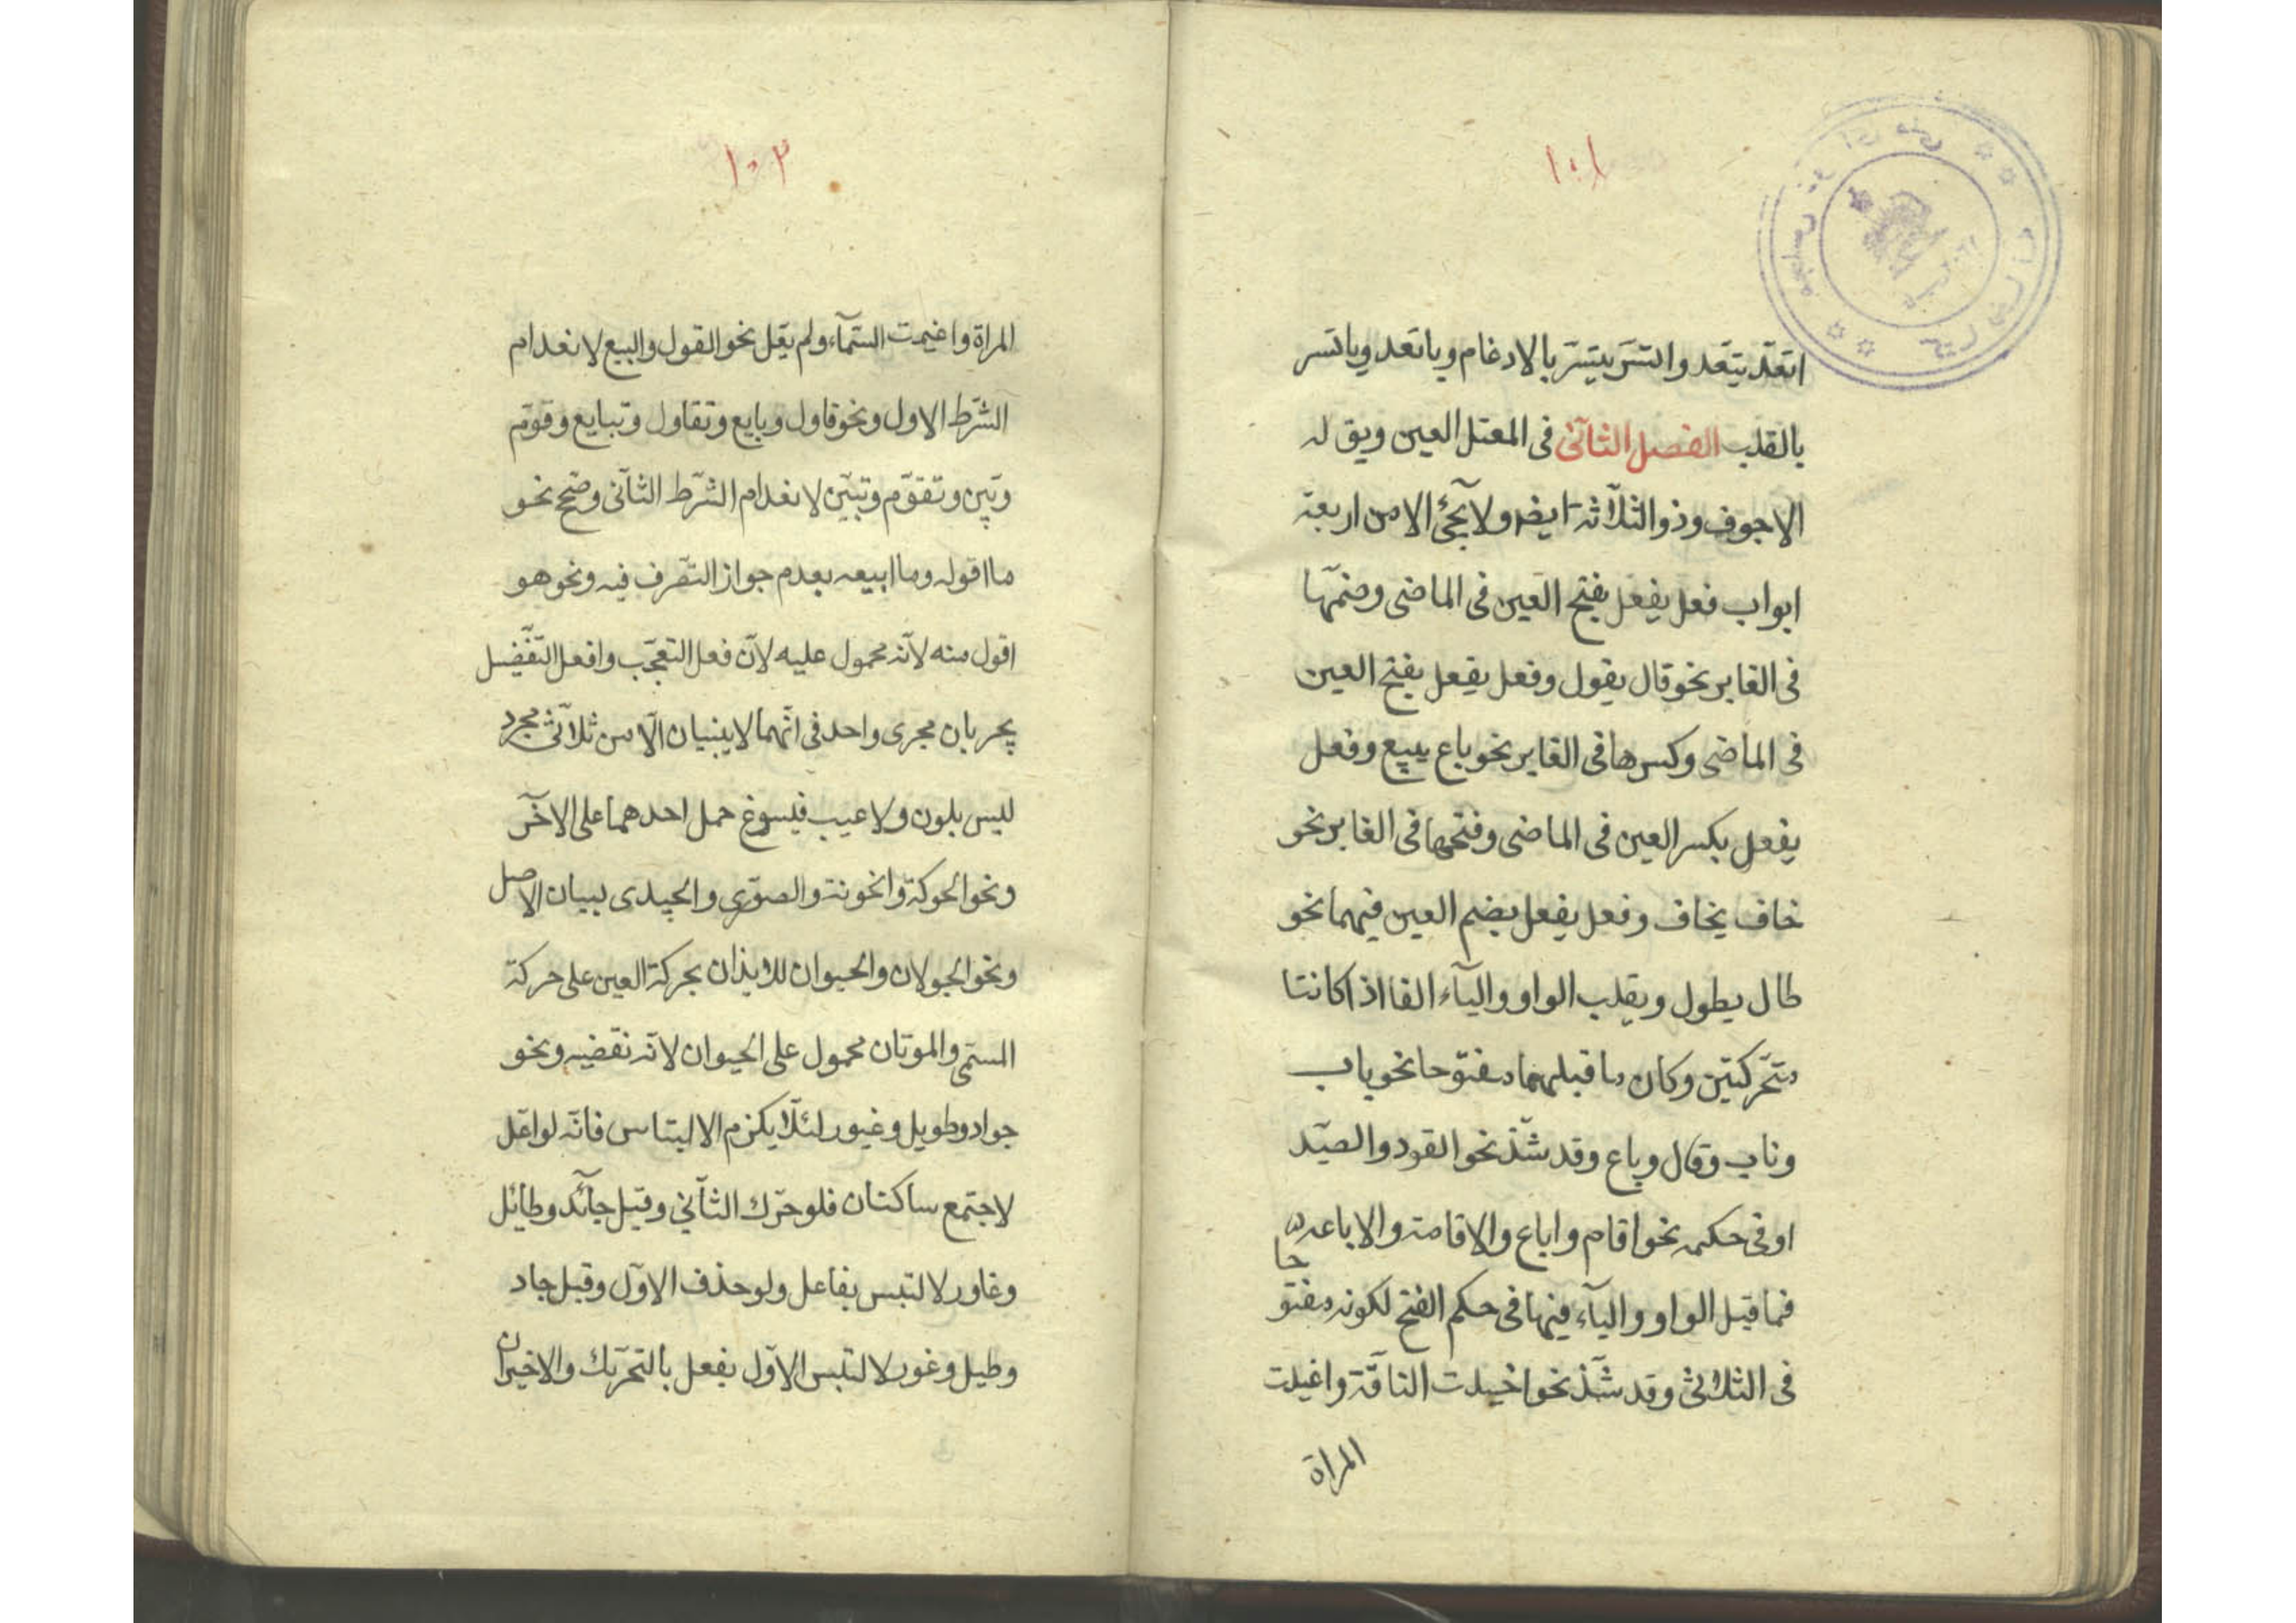 ١٠١
اتعد يتعد واتسر يتسر بالادغام وياتعد وياتسر
بالقلب الفصل الثاني فى المعتل العين ويق له
الاجوف وذو الثلاثة ايضا ولا يجئ الا من اربعة
ابواب فعل يفعل بفتح العين فى الماضى وضمها
فى الغابر نحو قال يقول وفعل يفعل بفتح العين
فى الماضى وكسرها فى الغابر نحو باع يبيع وفعل
يفعل بكسر العين فى الماضى وفتحها فى الغابر نحو
خاف يخاف وفعل يفعل بضم العين فيهما نحو
طال يطول ويقلب الواو والياء الفا اذا كانتا
متحركتين وكان ما قبلهما مفتوحا نحو باب
وناب وقال وباع وقد شذ نحو القود والصيد
او فى حكمه نحو اقام واباع والاقامة والاباعة
فما قبل الواو والياء فيها فى حكم الفتح لكونه مفتوحا
فى الثلاثى وقد شذ نحو اخيلت الناقة واغيلت
المراة
١٠٢
المراة واغيمت السماء ولم يعل نحو القول والبيع لانعدام
الشرط الاول ونحو قاول وبايع وتقاول وتبايع وقوم
وبين وتقوم وتبين لانعدام الشرط الثانى وصح نحو
ما اقوله وما ابيعه بعدم جواز التصرف فيه ونحو هو
اقول منه لانه محمول عليه لان فعل التعجب وافعل التفضيل
يجريان مجرى واحد فى انهما لا يبنيان الا من ثلاثى مجرد
ليس بلون ولا عيب فيسوغ حمل احدهما على الآخر
ونحو الحوكة والخونة والصورى والحيدى لبيان الاصل
ونحو الجولان والحيوان للايذان بحركة العين على حركة
المسمى والموتان محمول على الحيوان لانه نقضيه ونحو
جواد وطويل وغيور لئلا يلزم الالتباس فانه لو اعل
لاجتمع ساكنان فلو حرك الثاني وقيل جائد وطائل
وغاور لالتبس بفاعل ولو حذف الاول وقيل جاد
وطيل وغور لالتبس الاول بفعل بالتحريك والاخيران